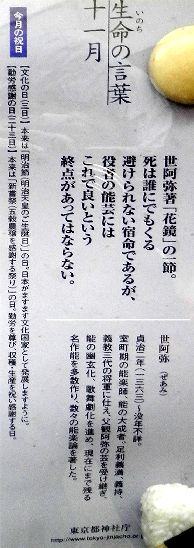 生命の言葉
いのち
十一月
世阿弥著「花鏡」の一節。
死は誰にでもくる
避けられない宿命であるが、
役者の能芸には
これで良いという
終点があってはならない。
世阿弥(ぜあみ)
貞治二年(一三六三)~没年不詳。
室町期の能楽師、能の大成者。足利義満、義持、
義教三代の将軍に仕え、父観阿弥の芸を受け継ぎ、
能の幽玄化、歌舞劇化を進め、現在にまで残る
名作能を多数作り、数々の能楽論を著した。
今月の祝日
【文化の日(三日)】本来は「明治節(明治天皇のご生誕日)」の日。日本がますます文化国家として発展しますように。
【勤労感謝の日(二十三日)】本来は「新嘗祭(五穀豊穣を感謝する祭り)」の日。勤労を尊び、収穫・生産を祝い感謝する日。
東京都神社庁
http://www.tokyo-jinjacho.or.jp